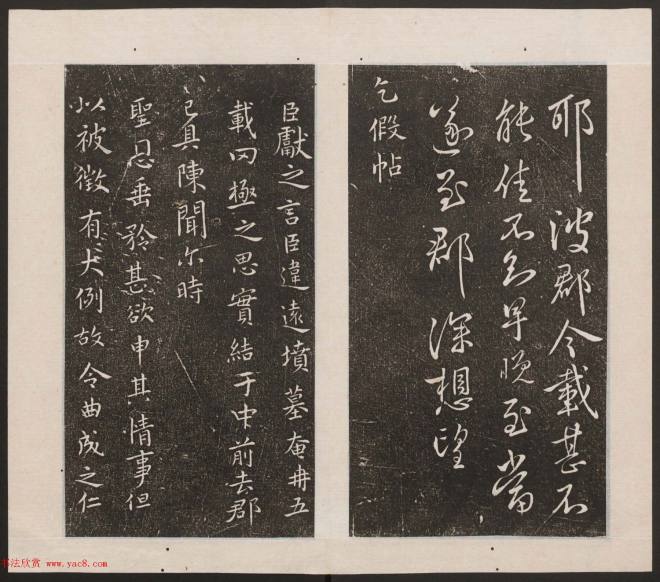 耶彼郡今載甚不
能佳不知早晚至當
遂至郡深想望
乞假帖
臣獻之言臣違遠墳墓奄冉五
載罔極之思實結于中前去郡
已具陳聞尔時
聖恩垂矜甚欲申其情事但
以被徵有大例故令曲成之仁
书法欣赏 www.yac8.com